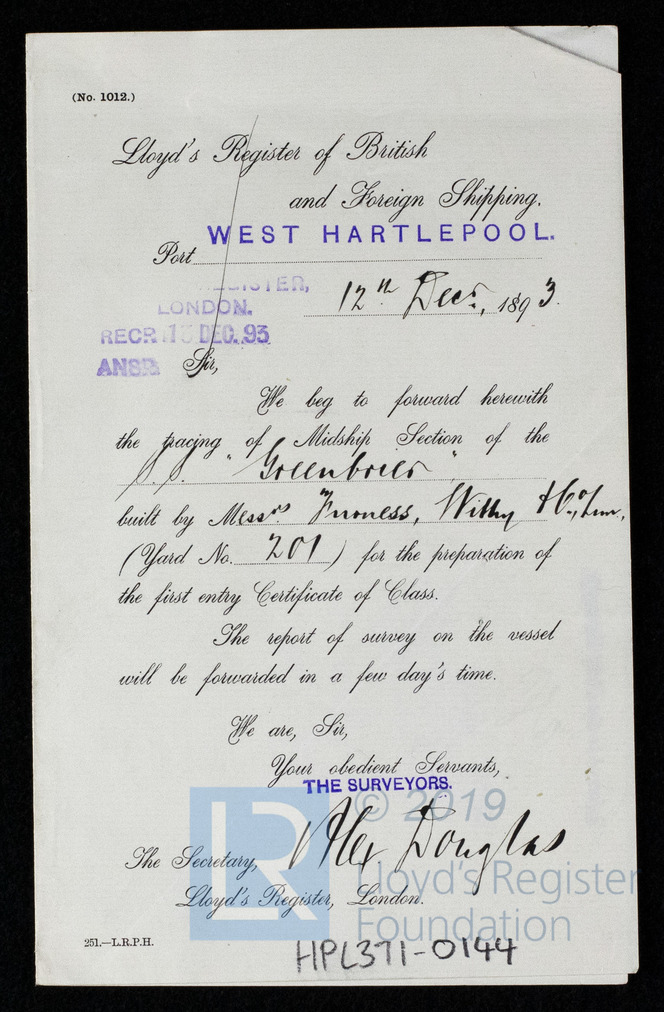 (No. 1012.)
Lloyd's Register of British
and Foreign Shipping.
Port WEST HARTLEPOOL.
REGISTER,
LONDON.
12th Decr., 1893.
RECD 13 DEC. 93
ANSD
Sir,
We beg to forward herewith
the tracing of Midship Section of the
S.S. "Greenbrier"
built by Messrs. Furness, Withy & Co., Lim,
(Yard No. 201) for the preparation of
the first entry Certificate of Class.
The report of survey on the vessel
will be forwarded in a few day's time.
We are, Sir,
Your obedient Servants,
THE SURVEYORS.
© 2019
Alex Douglas
The Secretary,
Lloyd's Register, London.
LR
Lloyd's Register
Foundation
251.—L.R.P.H.
HPL371-0144